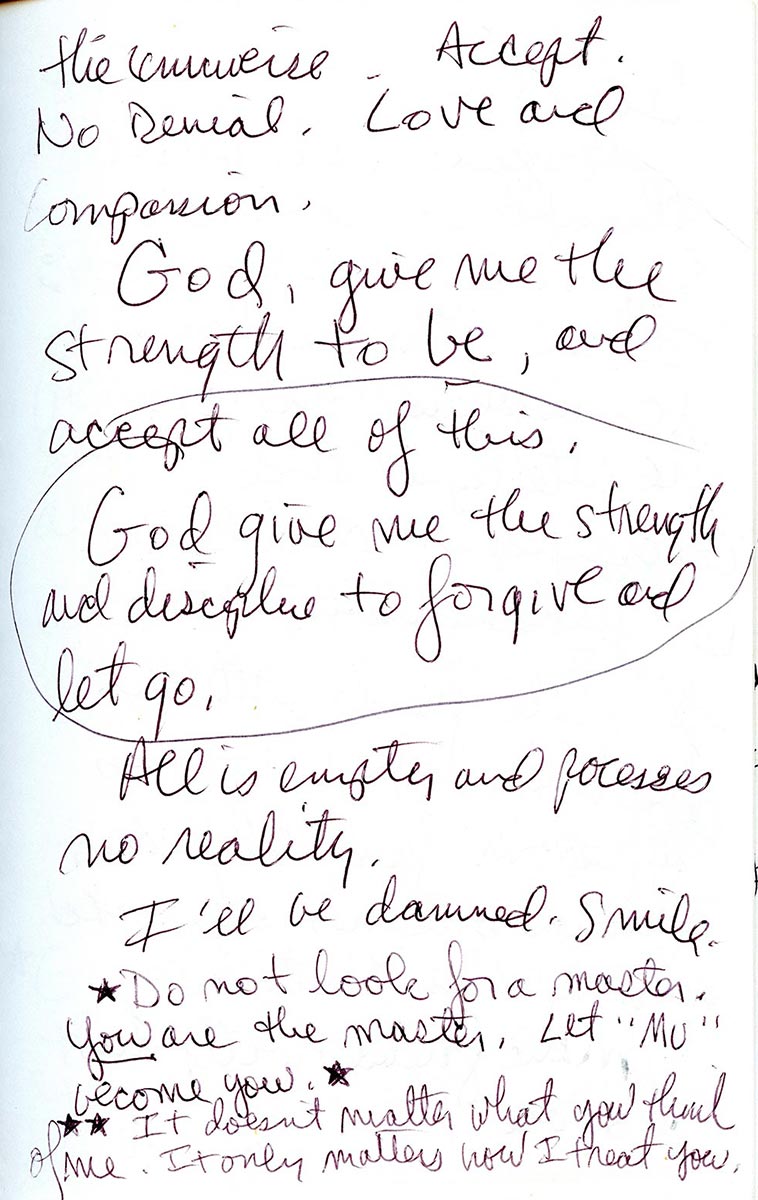 the universe. Accept.
No Denial. Love and
Compassion.
God, give me the
strength to be, and
accept all of this.
God give me the strength
and discipline to forgive and
let go.
All is empty and posesses
no reality.
I'll be damned. Smile.
★ Do not look for a master.
You are the master. Let "MU"
become you. ★
★★ It doesn't matter what you think
of me. It only matters how I treat you.